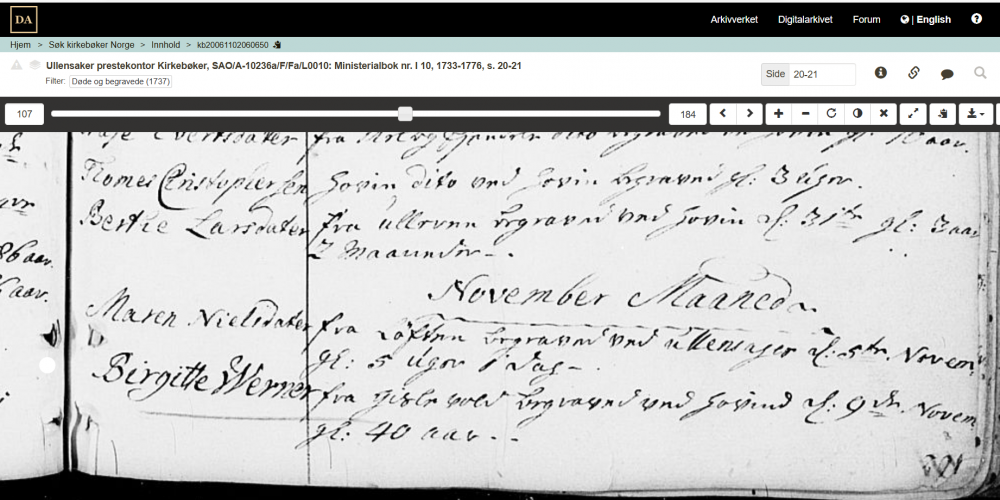 DA
Arkivverket Digitalarkivet Forum | English
Hjem > Søk kirkebøker Norge > Innhold > kb20061102060650
Ullensaker prestekontor Kirkebøker, SAO/A-10236a/F/Fa/L0010: Ministerialbok nr. I 10, 1733-1776, s. 20-21
Filter: Døde og begravede (1737)
Side 20-21
107
184
Evertsdatter fra dito begraved aar.
Tromes Cristophersen Hovin dito ved Hovin begraved gl: 3 uger.
Berthe Larsdater fra ullern begraved ved Hovin d: 31te gl: 3 aar
2 Maaneder
86 aar.
aar.
November Maaned
Maren Nielsdater fra Løften begraved ved ullensager d: 5te Novem:
gl: 5 uger 1 Dag
Birgitte Werner fra gislevold begraved ved Hovind d: 9de Novem
gl: 40 aar